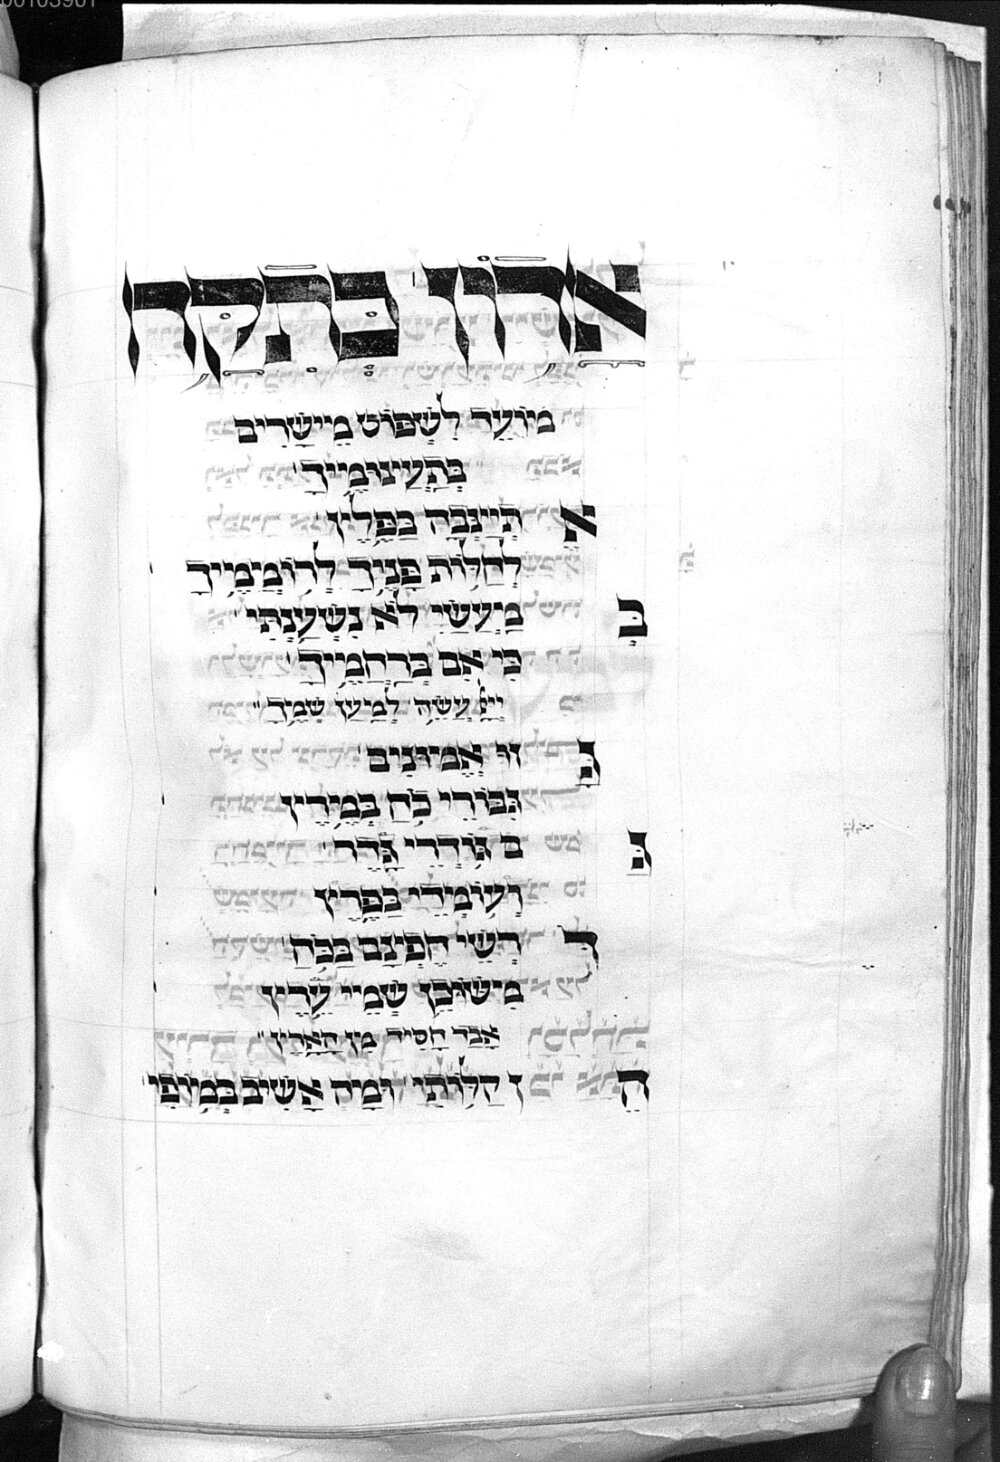 00103901
אדון בתקח
מועד לשפוט מיישרים
בתעינומייך
א תייננבה בפלין
לחלות פניך לרוממיך
ב מעשי לא נשענתי
כי אם ברחמייך
ייי עשה למען שמך
זו אמונים
גבורי כח במירין
ג ם גודרי גדר
ועומדי בפרץ
ד רשי חפינם בכה
מישוכן שמיי ערץ
אבד חסיד מן הארץ
ה ן קלותי ומה אשיב במופי